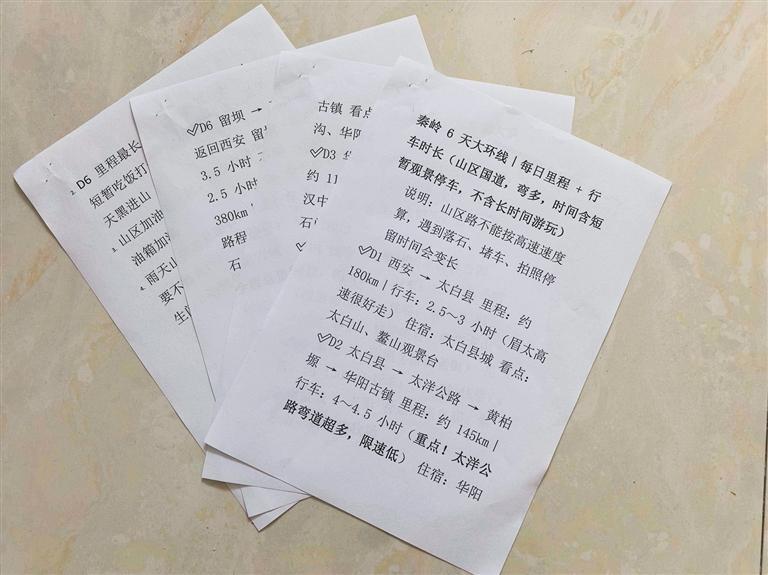 秦岭 6 天大环线｜每日里程 + 行
车时长（山区国道，弯多，时间含短
暂观景停车，不含长时间游玩）
说明：山区路不能按高速速度
算，遇到落石、堵车、拍照停
留时间会变长
✓D1 西安 → 太白县 里程：约
180km｜行车：2.5～3 小时（眉太高
速很好走） 住宿：太白县城 看点：
太白山、鳌山观景台
✓D2 太白县 → 太洋公路 → 黄柏
塬 → 华阳古镇 里程：约 145km｜
行车：4～4.5 小时（重点！太洋公
路弯道超多，限速低） 住宿：华阳
古镇 看点
沟、华阳
✓D3 华
约 11
汉中
石
✓
✓D6 留坝 →
返回西安 留
3.5 小时
2.5 小时
380km，
路程
石
2. D6 里程最长
短暂吃饭打
天黑进山
3. 山区加油
油箱加
4. 雨天山
要不
生